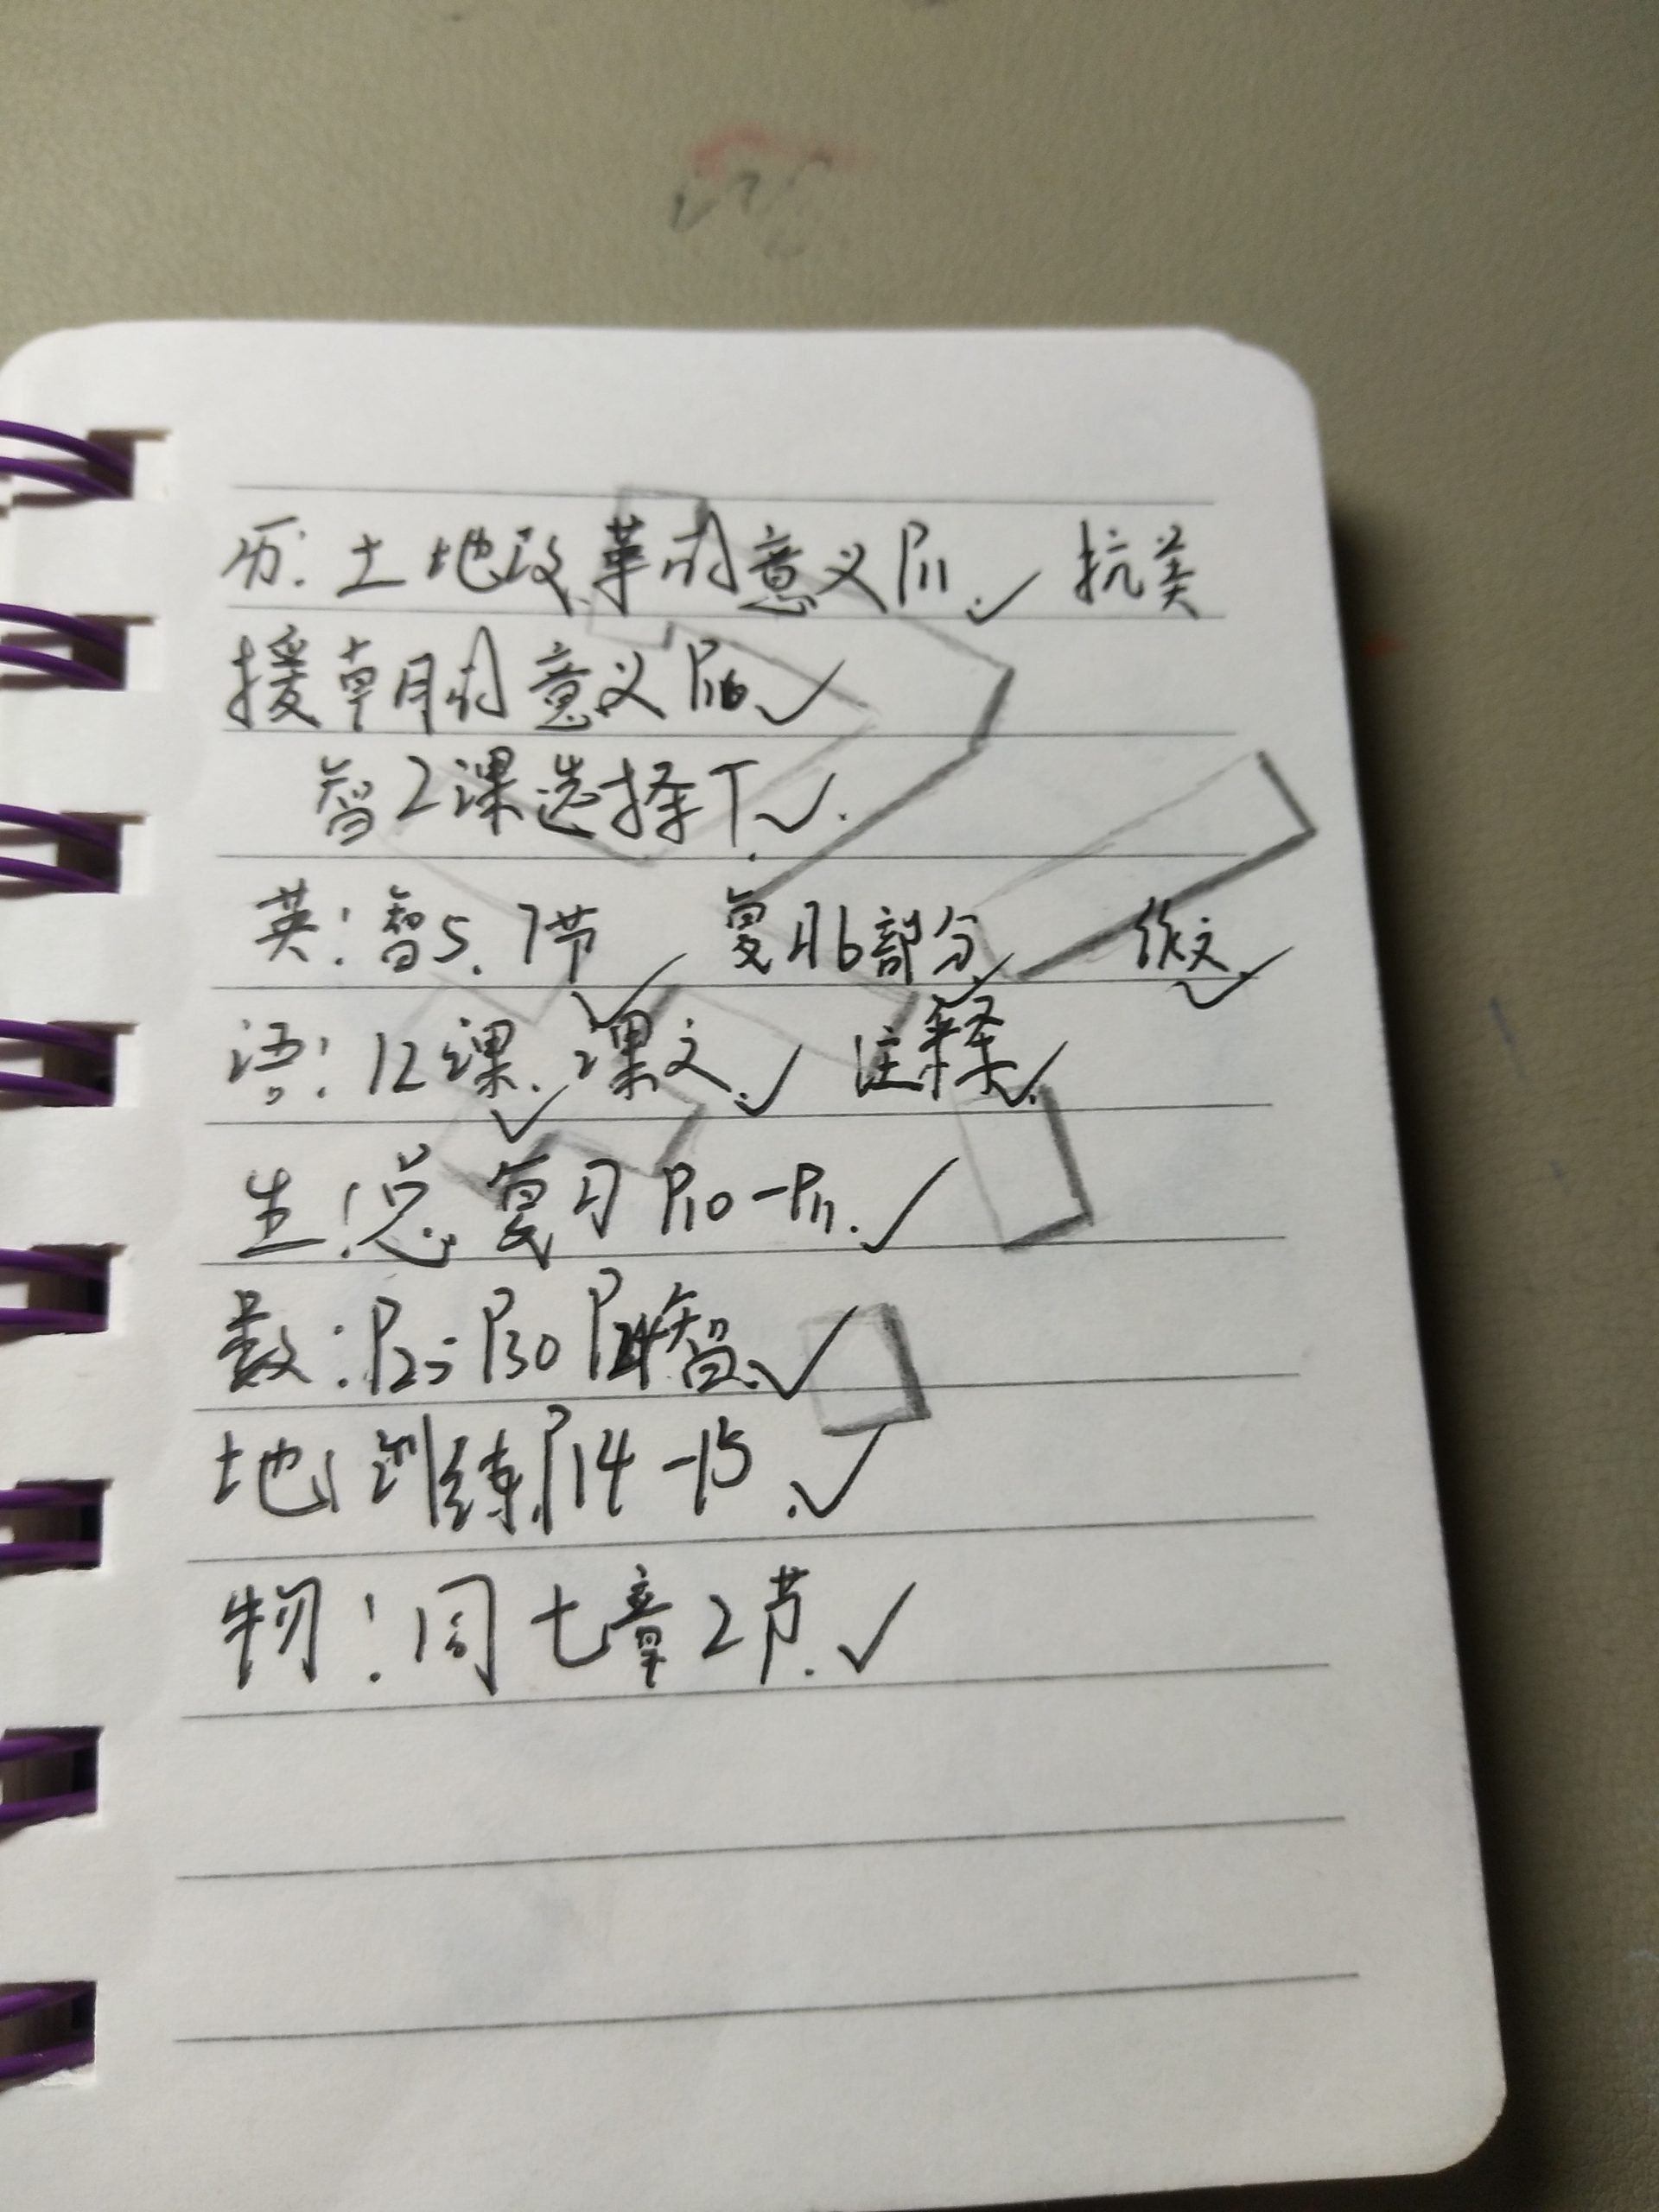 历:土地改革的意义P11.✓ 抗美
援朝的意义P16✓
智2课选择T.✓.
英:智5.7节✓ 复习6部分✓ 作文✓
语:12课.✓课文.✓ 注释.✓
生:总复习P10-P11.✓
数:P25-P30 P24智.✓
地:训练P14-15.✓
物:同七章2节.✓